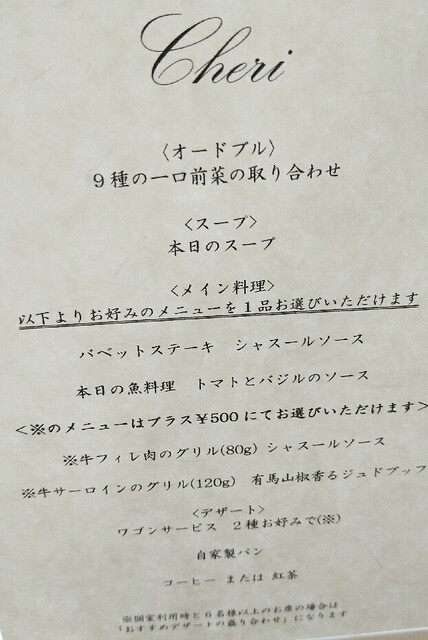 Cheri
〈オードブル〉
9種の一口前菜の取り合わせ
〈スープ〉
本日のスープ
〈メイン料理〉
以下よりお好みのメニューを1品お選びいただけます
バベットステーキ　シャスールソース
本日の魚料理　トマトとバジルのソース
<※のメニューはプラス¥500にてお選びいただけます>
※牛フィレ肉のグリル(80g) シャスールソース
※牛サーロインのグリル(120g)　有馬山椒香るジュドブッフ
〈デザート〉
ワゴンサービス　2種お好みで(※)
自家製パン
コーヒー または 紅茶
※個室利用時と6名様以上のお席の場合は
「おすすめデザートの盛り合わせ」になります